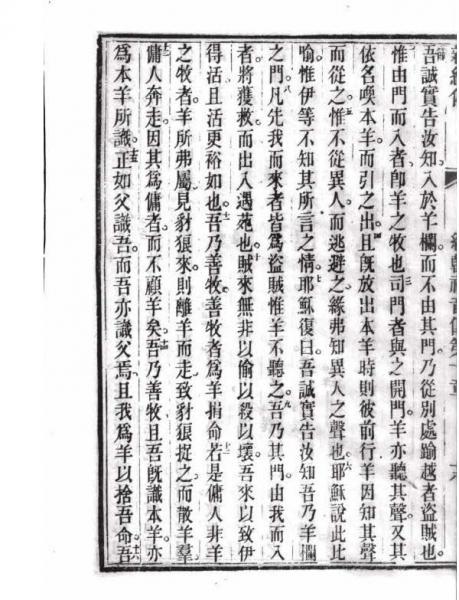 吾誠實告汝知。入於羊欄。而不由其門。乃從別處踰越者盜賊也。
惟由門而入者。卽羊之牧也。司門者與之開門。羊亦聽其聲。又其
依名喚本羊。而引之出。且旣放出本羊時。則彼前行。羊因知其聲
而從之。惟不從異人。而逃避之。緣弗知異人之聲也。耶穌說此比
喻。惟伊等不知其所言之情。耶穌復曰。吾誠實告汝知吾乃羊欄
之門。凡先我而來者皆爲盜賊。惟羊不聽之。吾乃其門。由我而入
者。將獲救。而出入遇苑也。賊來無非以偷以殺以壞。吾來以致伊
得活。且活更裕如也。吾乃善牧。善牧者爲羊捐命。若是傭人非羊
之牧者。羊所弗屬。見豺狼來。則離羊而走。致豺狼捉之。而散羊羣。
傭人奔走。因其爲傭者。而不顧羊矣。吾乃善牧。且吾旣識本羊。亦
爲本羊所識。正如父識吾。而吾亦識父焉。且我爲羊以捨吾命。吾